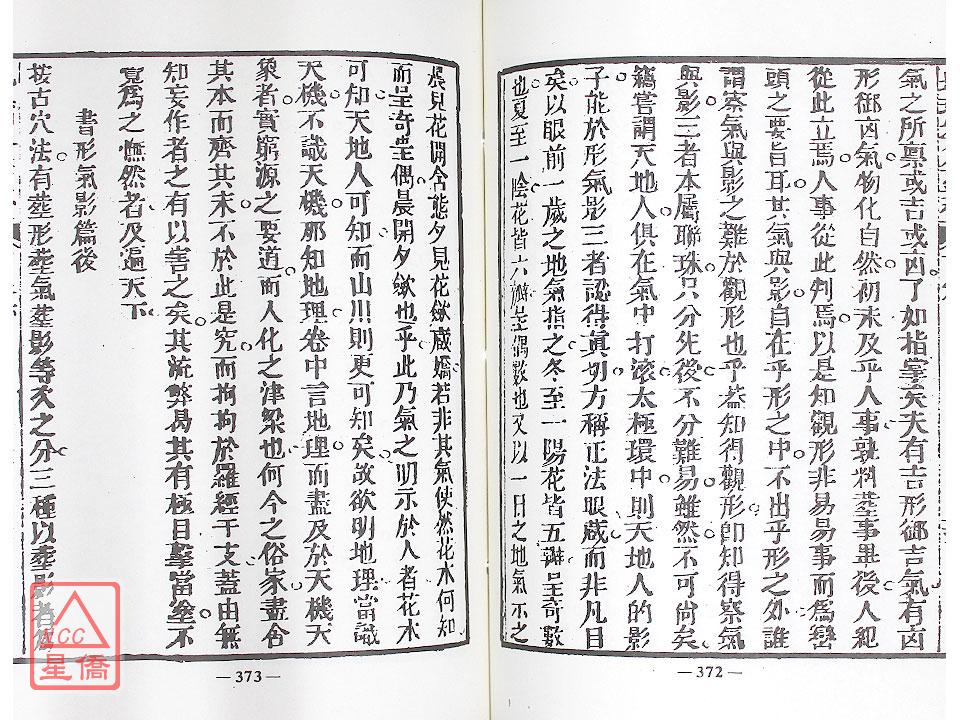 氣之所禀或吉或凶了如指掌矣夫有吉形御吉氣有凶
形御凶氣物化自然初未及乎人事孰料塟事畢後人紀
從此立焉人事從此判焉以是知觀形非易易事而爲巒
頭之要旨耳其氣與影自在乎形之中不出乎形之外誰
謂察氣與影之難於觀形也乎葢知得觀形卽知得察氣
與影三者本屬聯珠只分先後不分難易雖然不可尙矣
籌嘗謂天地人俱在氣中打滚太極環中則天地人的影
子能於形氣影三者認得眞切方稱正法眼藏而非凡目
矣以眼前一歲之地氣指之冬至一陽花皆五瓣呈奇數
也夏至一陰花皆六瓣呈偶數也又以一日之地氣示之
晨見花開含態夕見花歛藏嬌若非其氣使然花木何知
而呈奇呈偶晨開夕歛也乎此乃氣之明示於人者花木
可知天地人可知而山川則更可知矣故欲明地理當識
天機不識天機那知地理卷中言地理而盡及於天機天
象者實窮源之要道而人化之津梁也何今之俗家盡舍
其本而齊其末不於此是究而拘拘於羅經干支蓋由無
知妄作者之有以害之矣其流弊曷其有極目擊當塗不
寛爲之憮然者及遍天下
書形氣影篇後
按古穴法有塟形塟氣塟影等次之分三種以塟影者爲
—372—
—373—
NCC
星僑